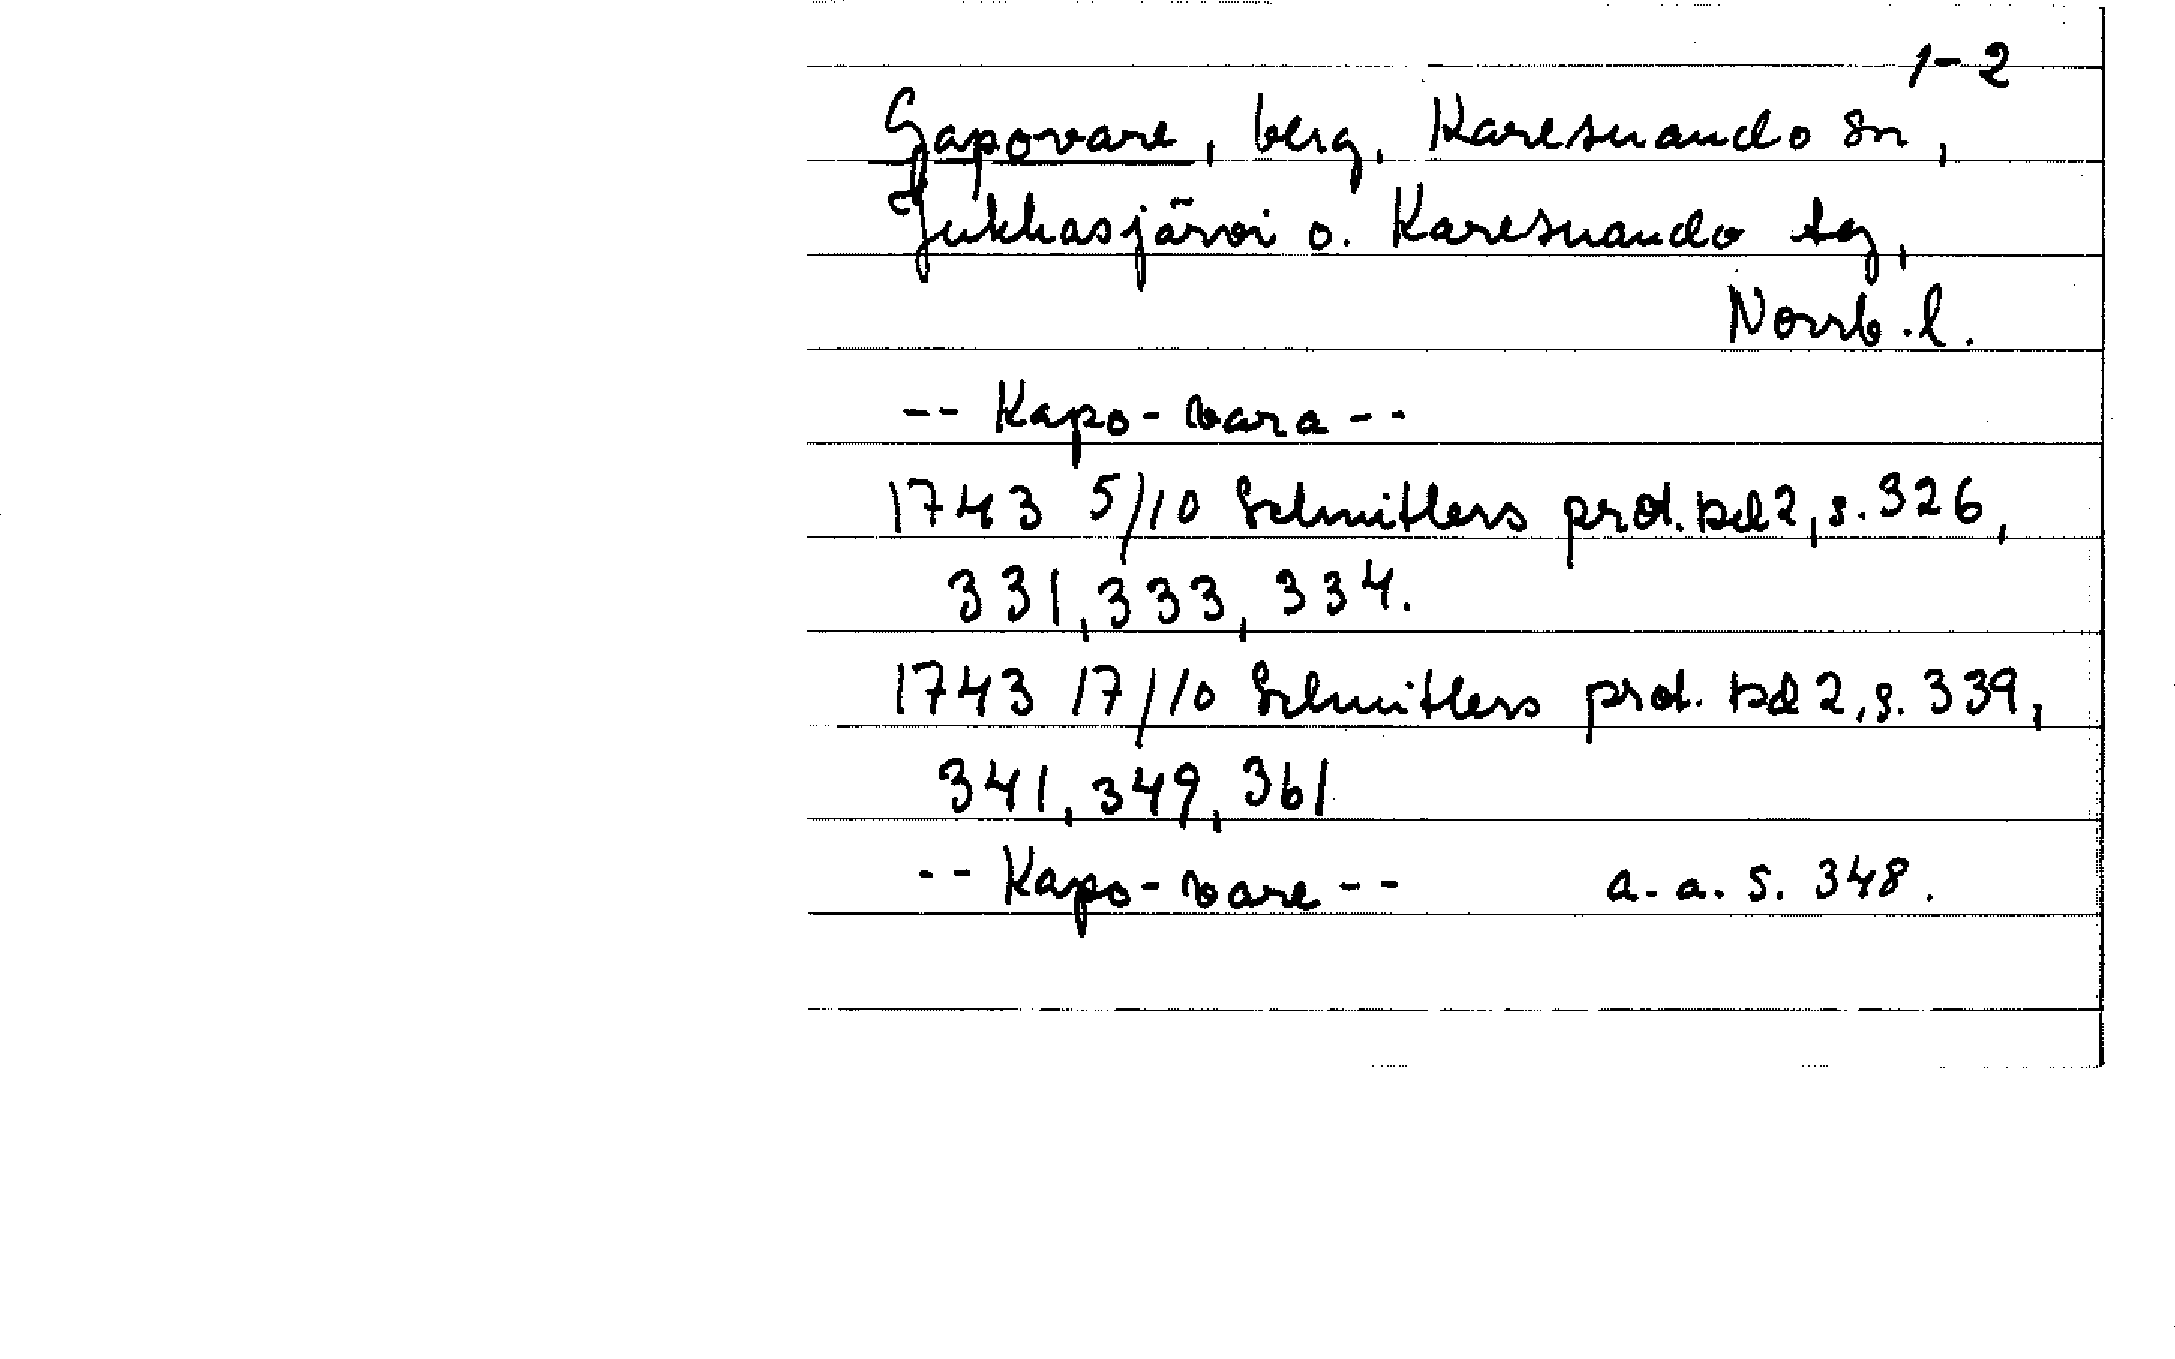 1-2
Gapovare, berg, Karesuando sn,
Jukkasjärvi o. Karesuando tg,
Norrb. l.
-- Kapo-vara --
1743 5/10 Schnitlers prot. bd 2, s. 326,
331, 333, 334.
1743 17/10 Schnitlers prot. bd 2, s. 339,
341, 349, 361
-- Kapo-vare -- a. a. s. 348.